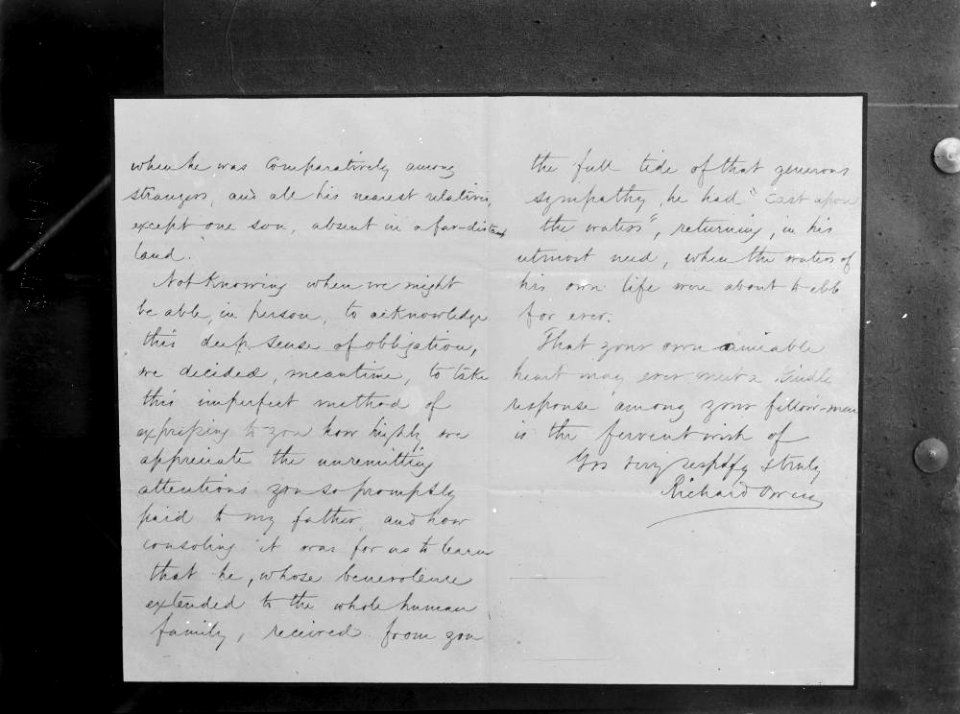 when he was comparatively among
strangers, and all his nearest relatives,
except one son, absent in a far-distant
land.
Not knowing when we might
be able, in person, to acknowledge
this deep sense of obligation,
we decided, meantime, to take
this imperfect method of
expressing to you how highly we
appreciate the unremitting
attentions you so promptly
paid to my father, and how
consoling it was for us to learn
that he, whose benevolence
extended to the whole human
family, received from you
the full tide of that generous
sympathy, he had "cast upon
the waters", returning, in his
utmost need, when the waters of
his own life were about to ebb
for ever.
That your own amiable
heart may ever meet a kindly
response among your fellow-men
is the fervent wish of
Yrs very respfy & truly
Richard Owen